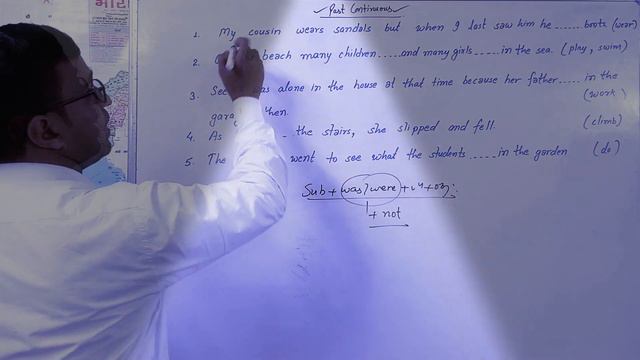 भारत
Past Continuous
1. My cousin wears sandals but when I last saw him he ...... boots (wear)
2. beach many children ..... and many girls ..... in the sea. (play, swim)
3. alone in the house at that time because her father ..... in the
(work)
then.
4. As the stairs, she slipped and fell. (climb)
5. The went to see what the students ..... in the garden (do)
Sub + was/were +
+ not